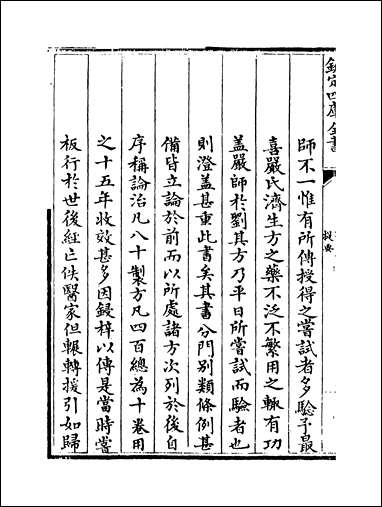 欽定四庫全書
提要
師不一惟有所傳授得之嘗試者多驗予最
喜嚴氏濟生方之藥不泛不繁用之輒有功
蓋嚴師於劉其方乃平日所嘗試而驗者也
則澄蓋甚重此書矣其書分門別類條例甚
備皆立論於前而以所處諸方次列於後自
序稱論治凡八十製方凡四百總為十卷用
之十五年收效甚多因鋟梓以傳是當時嘗
板行於世後經亡佚醫家但輾轉援引如歸